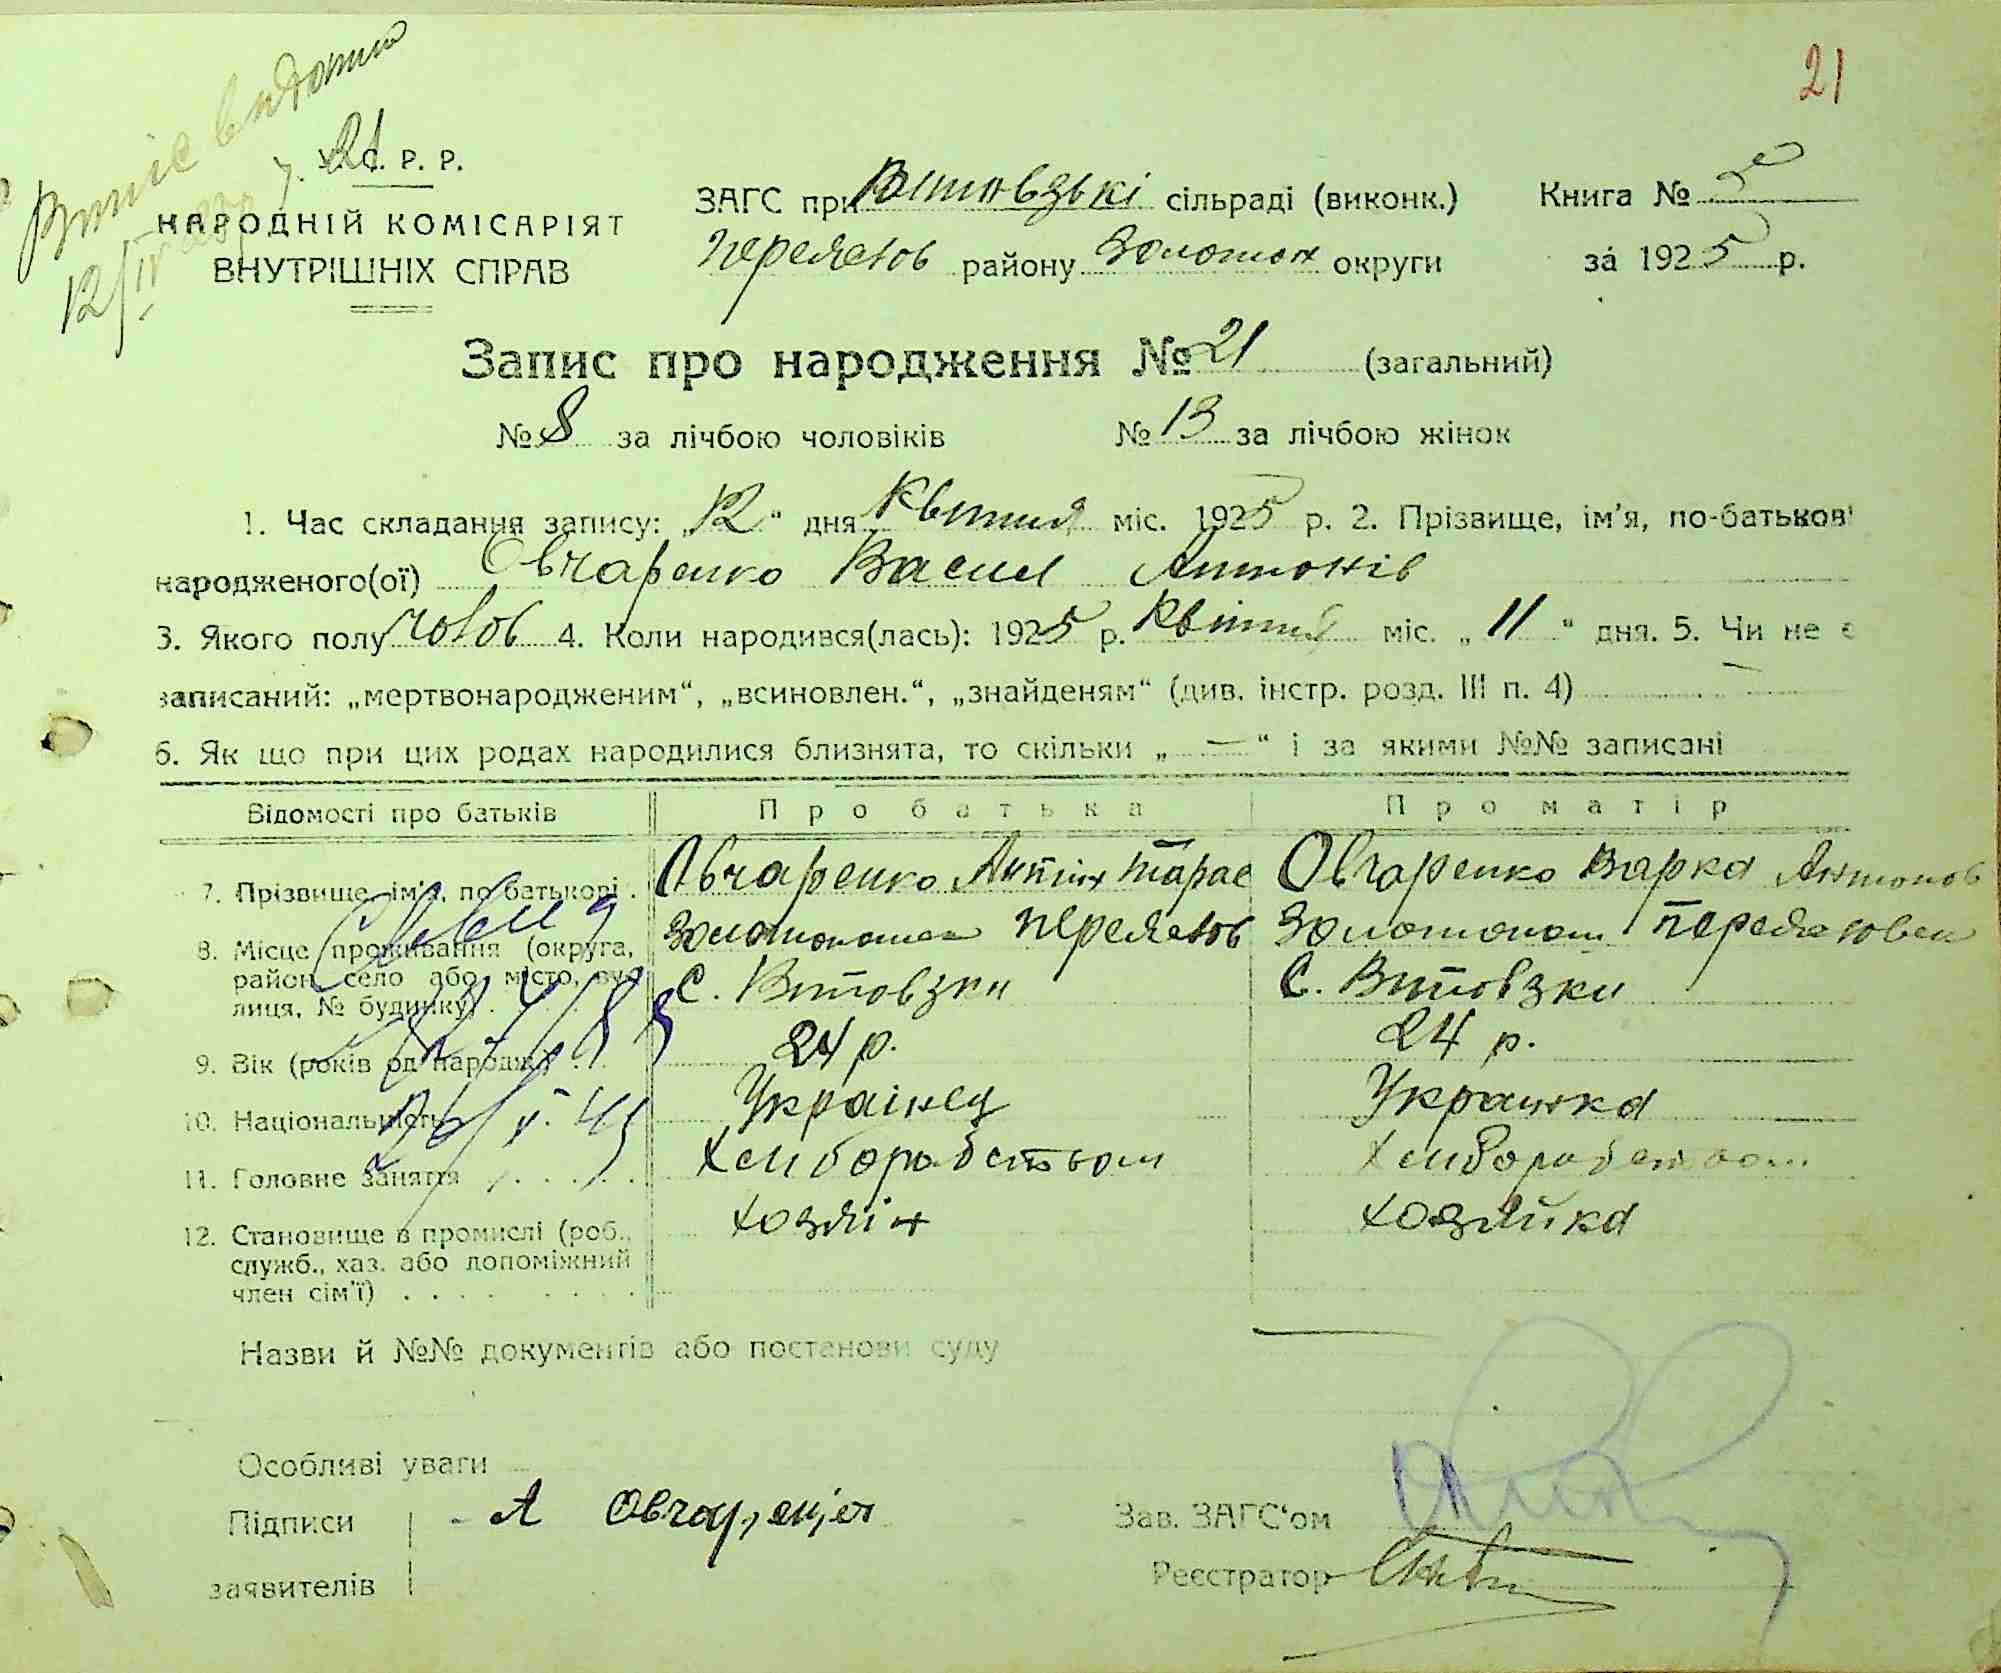 21
Випис видани
12/IV
У.С. Р. Р.
НАРОДНІЙ КОМІСАРІЯТ
ВНУТРІШНІХ СПРАВ
ЗАГС при Витовзькі сільраді (виконк.)
Переяслов району Золотон округи
Книга № 5
за 1925 р.
Запис про народження № 21 (загальний)
№ 8 за лічбою чоловіків № 13 за лічбою жінок
1. Час складання запису: „12“ дня Квітня міс. 1925 р. 2. Прізвище, ім’я, по-батькові
народженого(ої) Овчаренко Васил Антонів
3. Якого полу чолов 4. Коли народився(лась): 1925 р. Квітня міс. „11“ дня. 5. Чи не є
записаний: „мертвонародженим“, „всиновлен.“, „знайденям“ (див. інстр. розд. III п. 4) —
6. Як що при цих родах народилися близнята, то скільки „—“ і за якими №№ записані
Відомості про батьків Про батька Про матір
7. Прізвище, ім’я, по батькові . Овчаренко Антін Тарас Овчаренко Варка Антонов
8. Місце проживання (округа,
район, село або місто, ву-
лиця, № будинку)
с. Витовзки С. Витовзки
9. Вік (років од народж.) 24 р. 24 р.
10. Національність Украінец Украінка
11. Головне заняття Хлиборобством Хлиборобством
12. Становище в промислі (роб.,
служб., хаз. або допоміжний
член сім’ї)
хозяін хозяйка
Назви й №№ документів або постанови суду
Особливі уваги
Підписи
заявителів
А Овчаренко
Зав. ЗАГС‘ом
Реєстратор